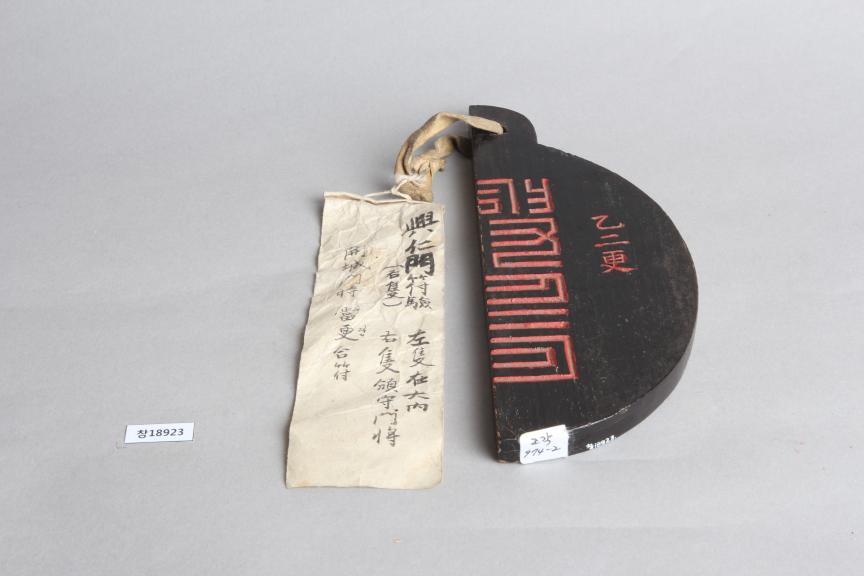 興仁門符驗 左隻在大內
(右隻) 右隻領守門將
當更合符
乙二更
창18923
235
974-2
창18923